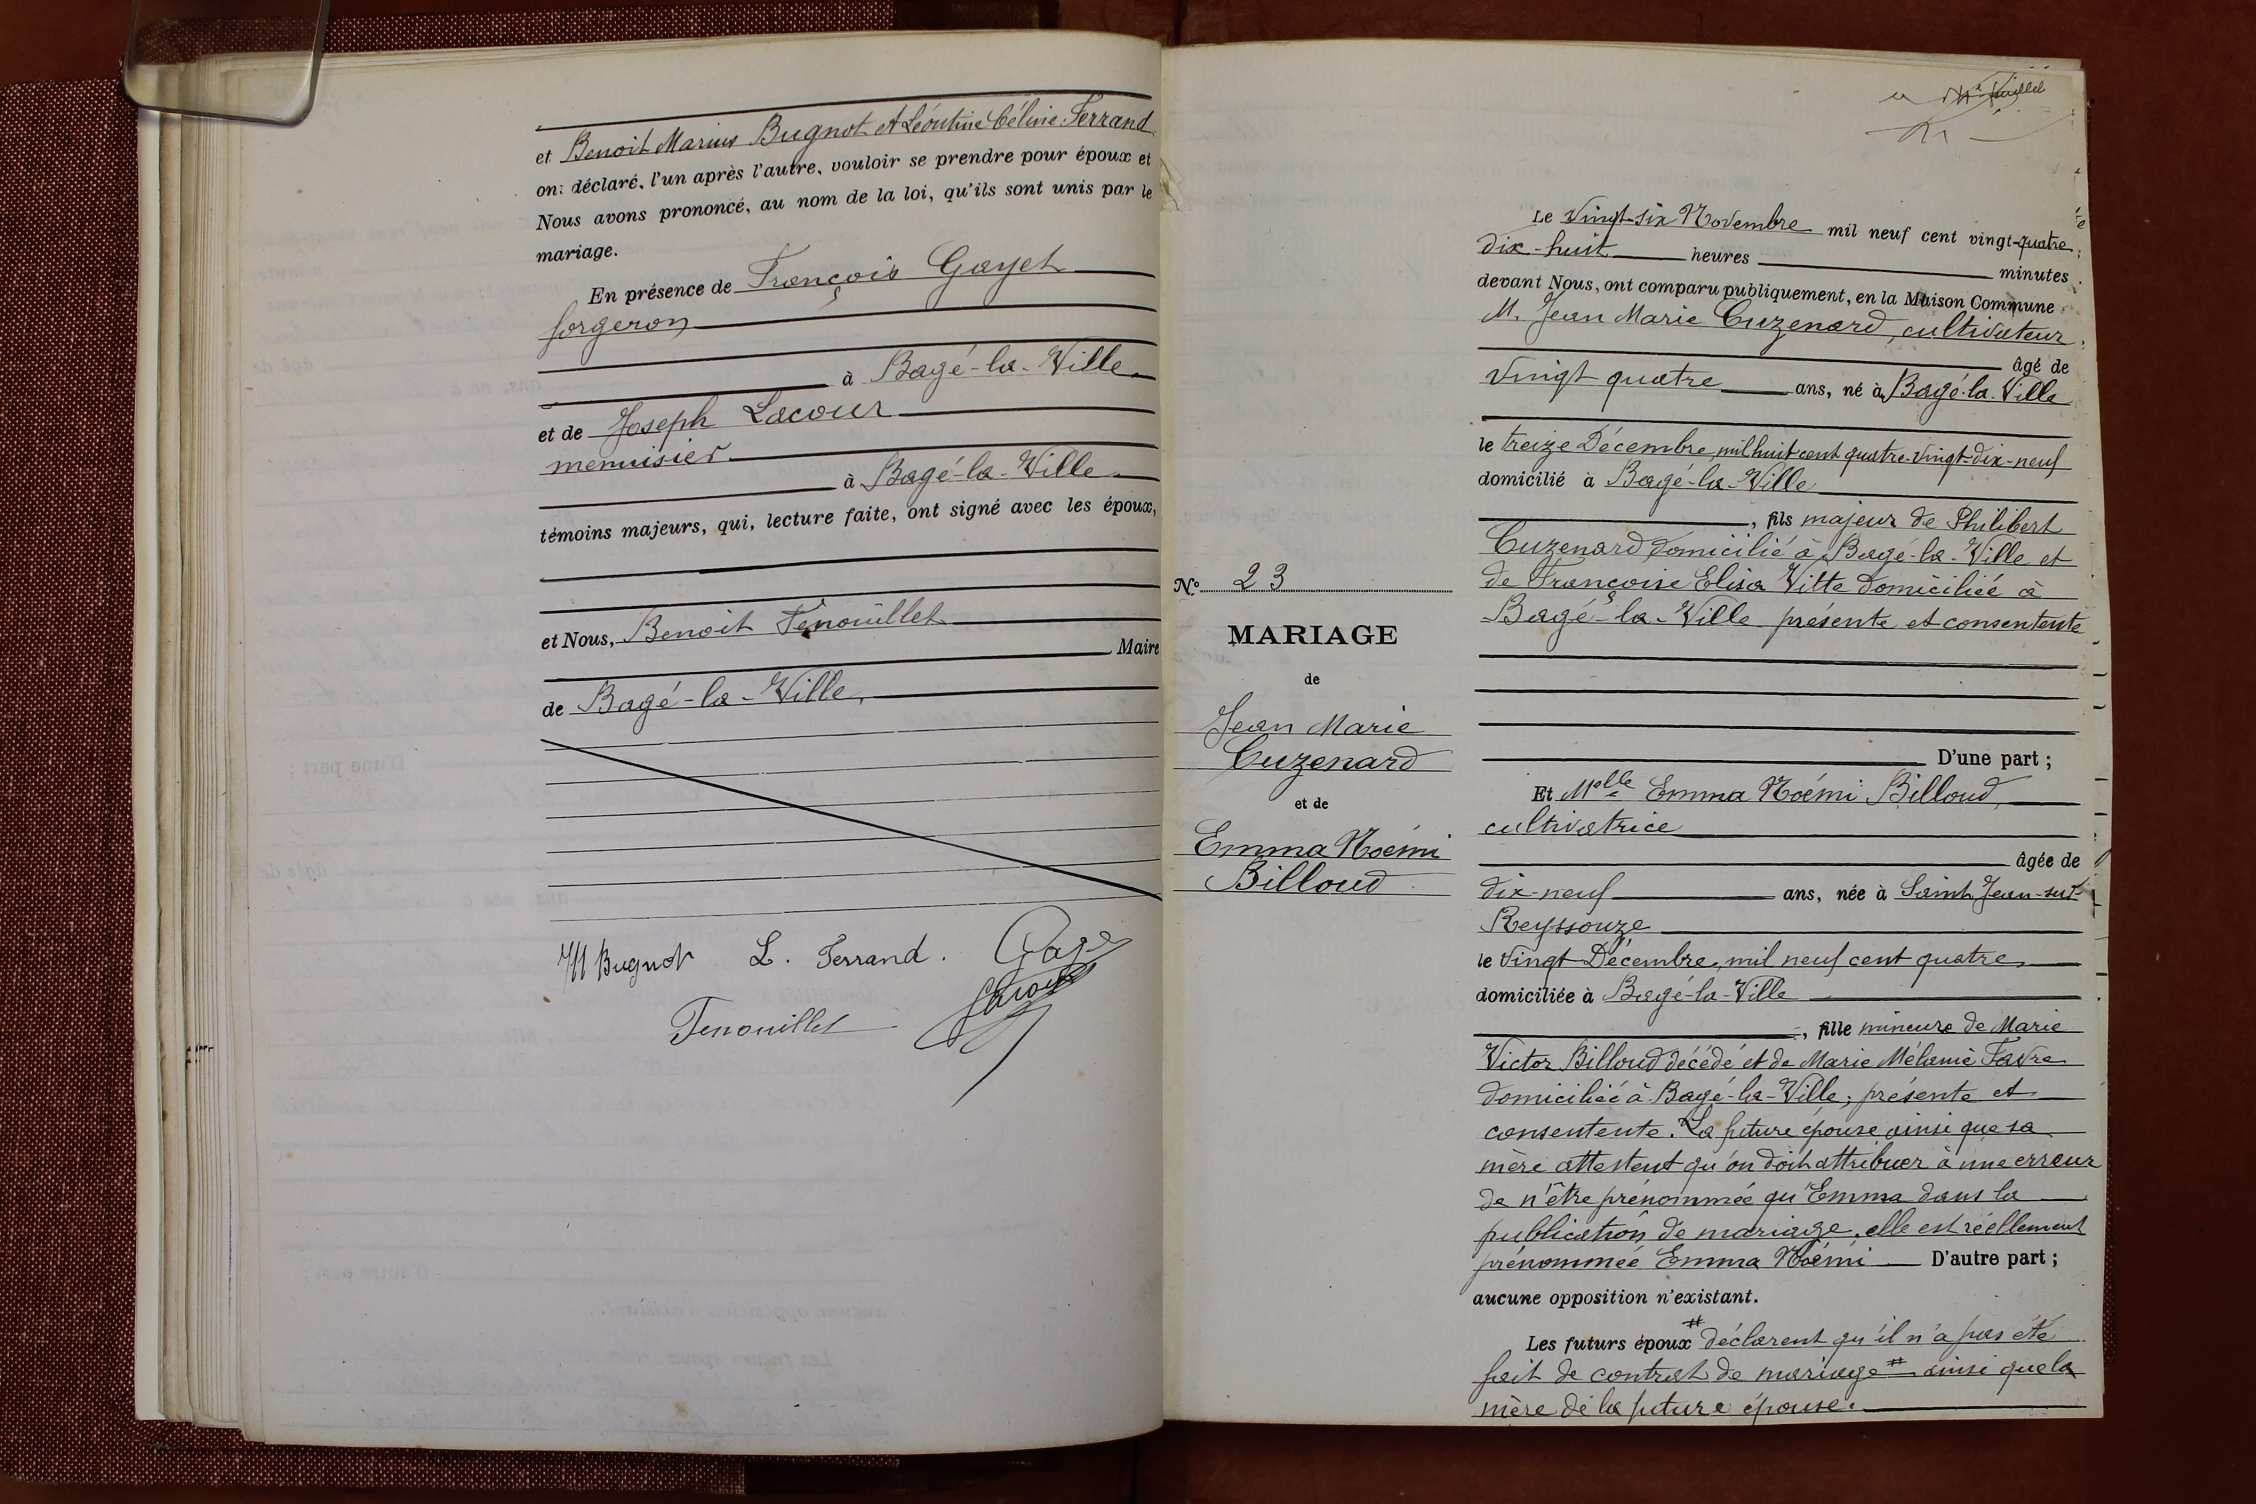 et Benoit Marius Bugnot et Léontine Céline Ferrand
ont déclaré, l'un après l'autre, vouloir se prendre pour époux et
Nous avons prononcé, au nom de la loi, qu'ils sont unis par le
mariage.
En présence de François Gayet
forgeron
à Bagé-la-Ville
et de Joseph Lacour
menuisier
à Bagé-la-Ville
témoins majeurs, qui, lecture faite, ont signé avec les époux,
et Nous, Benoit Fenouillet
Maire
de Bagé-la-Ville,
M Bugnot L. Ferrand. Gayet
Lacour
Fenouillet
N° 23
MARIAGE
de
Jean Marie
Cuzenard
et de
Emma Noémi
Billoud
feuillet
Le vingt-six Novembre mil neuf cent vingt-quatre
dix-huit heures minutes
devant Nous, ont comparu publiquement, en la Maison Commune
M. Jean Marie Cuzenard, cultivateur
âgé de
vingt quatre ans, né à Bagé-la-Ville
le treize Décembre, mil huit cent quatre-vingt-dix-neuf
domicilié à Bagé-la-Ville
, fils majeur de Philibert
Cuzenard domicilié à Bagé-la-Ville et
de Françoise Elisa Vitte domiciliée à
Bagé-la-Ville présente et consentente
D'une part ;
Et Melle Emma Noémi Billoud,
cultivatrice
âgée de
dix-neuf ans, née à Saint Jean-sur-
Reyssouze
le vingt Décembre, mil neuf cent quatre,
domiciliée à Bagé-la-Ville
, fille mineure de Marie
Victor Billoud décédé et de Marie Mélanie Favre
domiciliée à Bagé-la-Ville, présente et
consentente. La future épouse ainsi que sa
mère attestent qu'on doit attribuer à une erreur
de n'être prénommée qu'Emma dans la
publication de mariage, elle est réellement
prénommée Emma Noémi D'autre part ;
aucune opposition n'existant.
Les futurs époux # déclarent qu'il n'a pas été
fait de contrat de mariage # ainsi que la
mère de la future épouse.